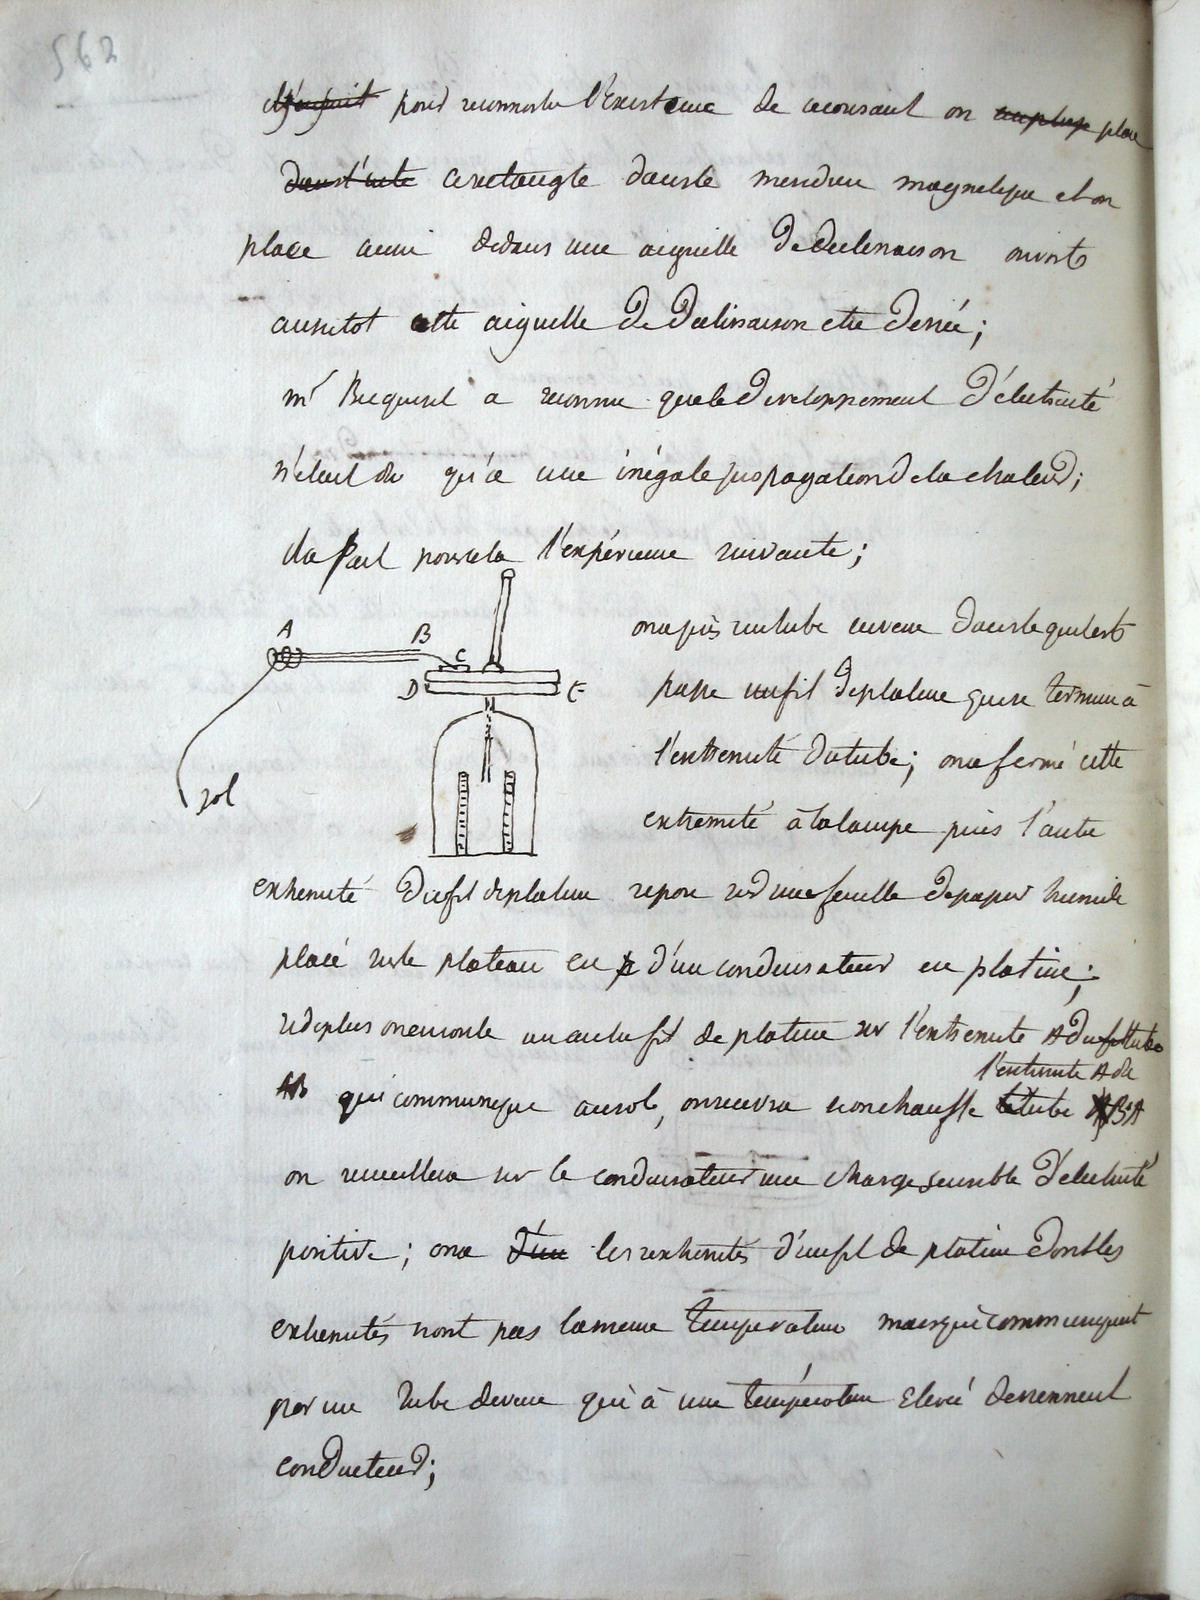 562
pour reconnoitre l'Existence de ce courant on place
dans l'inte ce rectangle dans le meridien magnetique et on
place aussi dedans une aiguille de declinaison on voit
aussitot cette aiguille de declinaison etre deviée;
mr Becquerel a reconnu que le developpement d'électricité
n'etait du qu'a une inégale propagation de la chaleur;
il a fait pour cela l'expérience suivante;
on a pris un tube en verre dans lequel est
passé un fil de platine qui se termine à
l'extremité du tube; on a fermé cette
extremité à la lampe puis l'autre
A
B
C
D
E
sol
extremité du fil de platine repose sur une feuille de papier humide
placé sur le plateau en d'un condensateur en platine;
si de plus on enroule un autre fil de platine sur l'extremité A du tube
l'extremité A de
AB qui communique au sol, on recevra si on chauffe le tube BA
on recueillera sur le condensateur une charge sensible d'électricité
positive; on a d'un les extremités d'un fil de platine dont les
extremités n'ont pas la meme temperature mais qui communiquent
par un tube de verre qui à une température Elevée deviennent
conducteur;